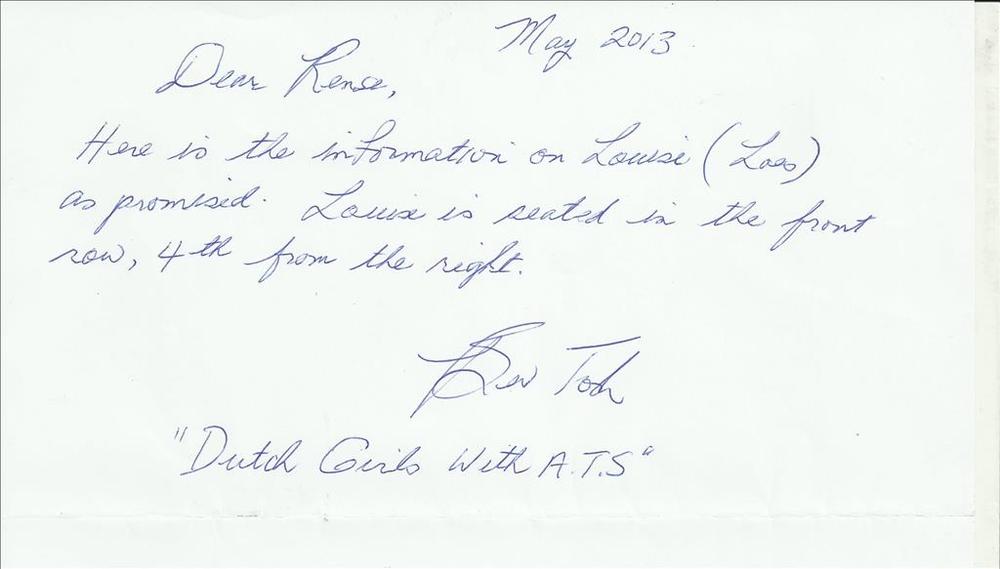 May 2013.
Dear Rense,
Here is the information on Louise (Loes)
as promised. Louise is seated in the front
row, 4th from the right.
Bev Tosh
"Dutch Girls With A.T.S"